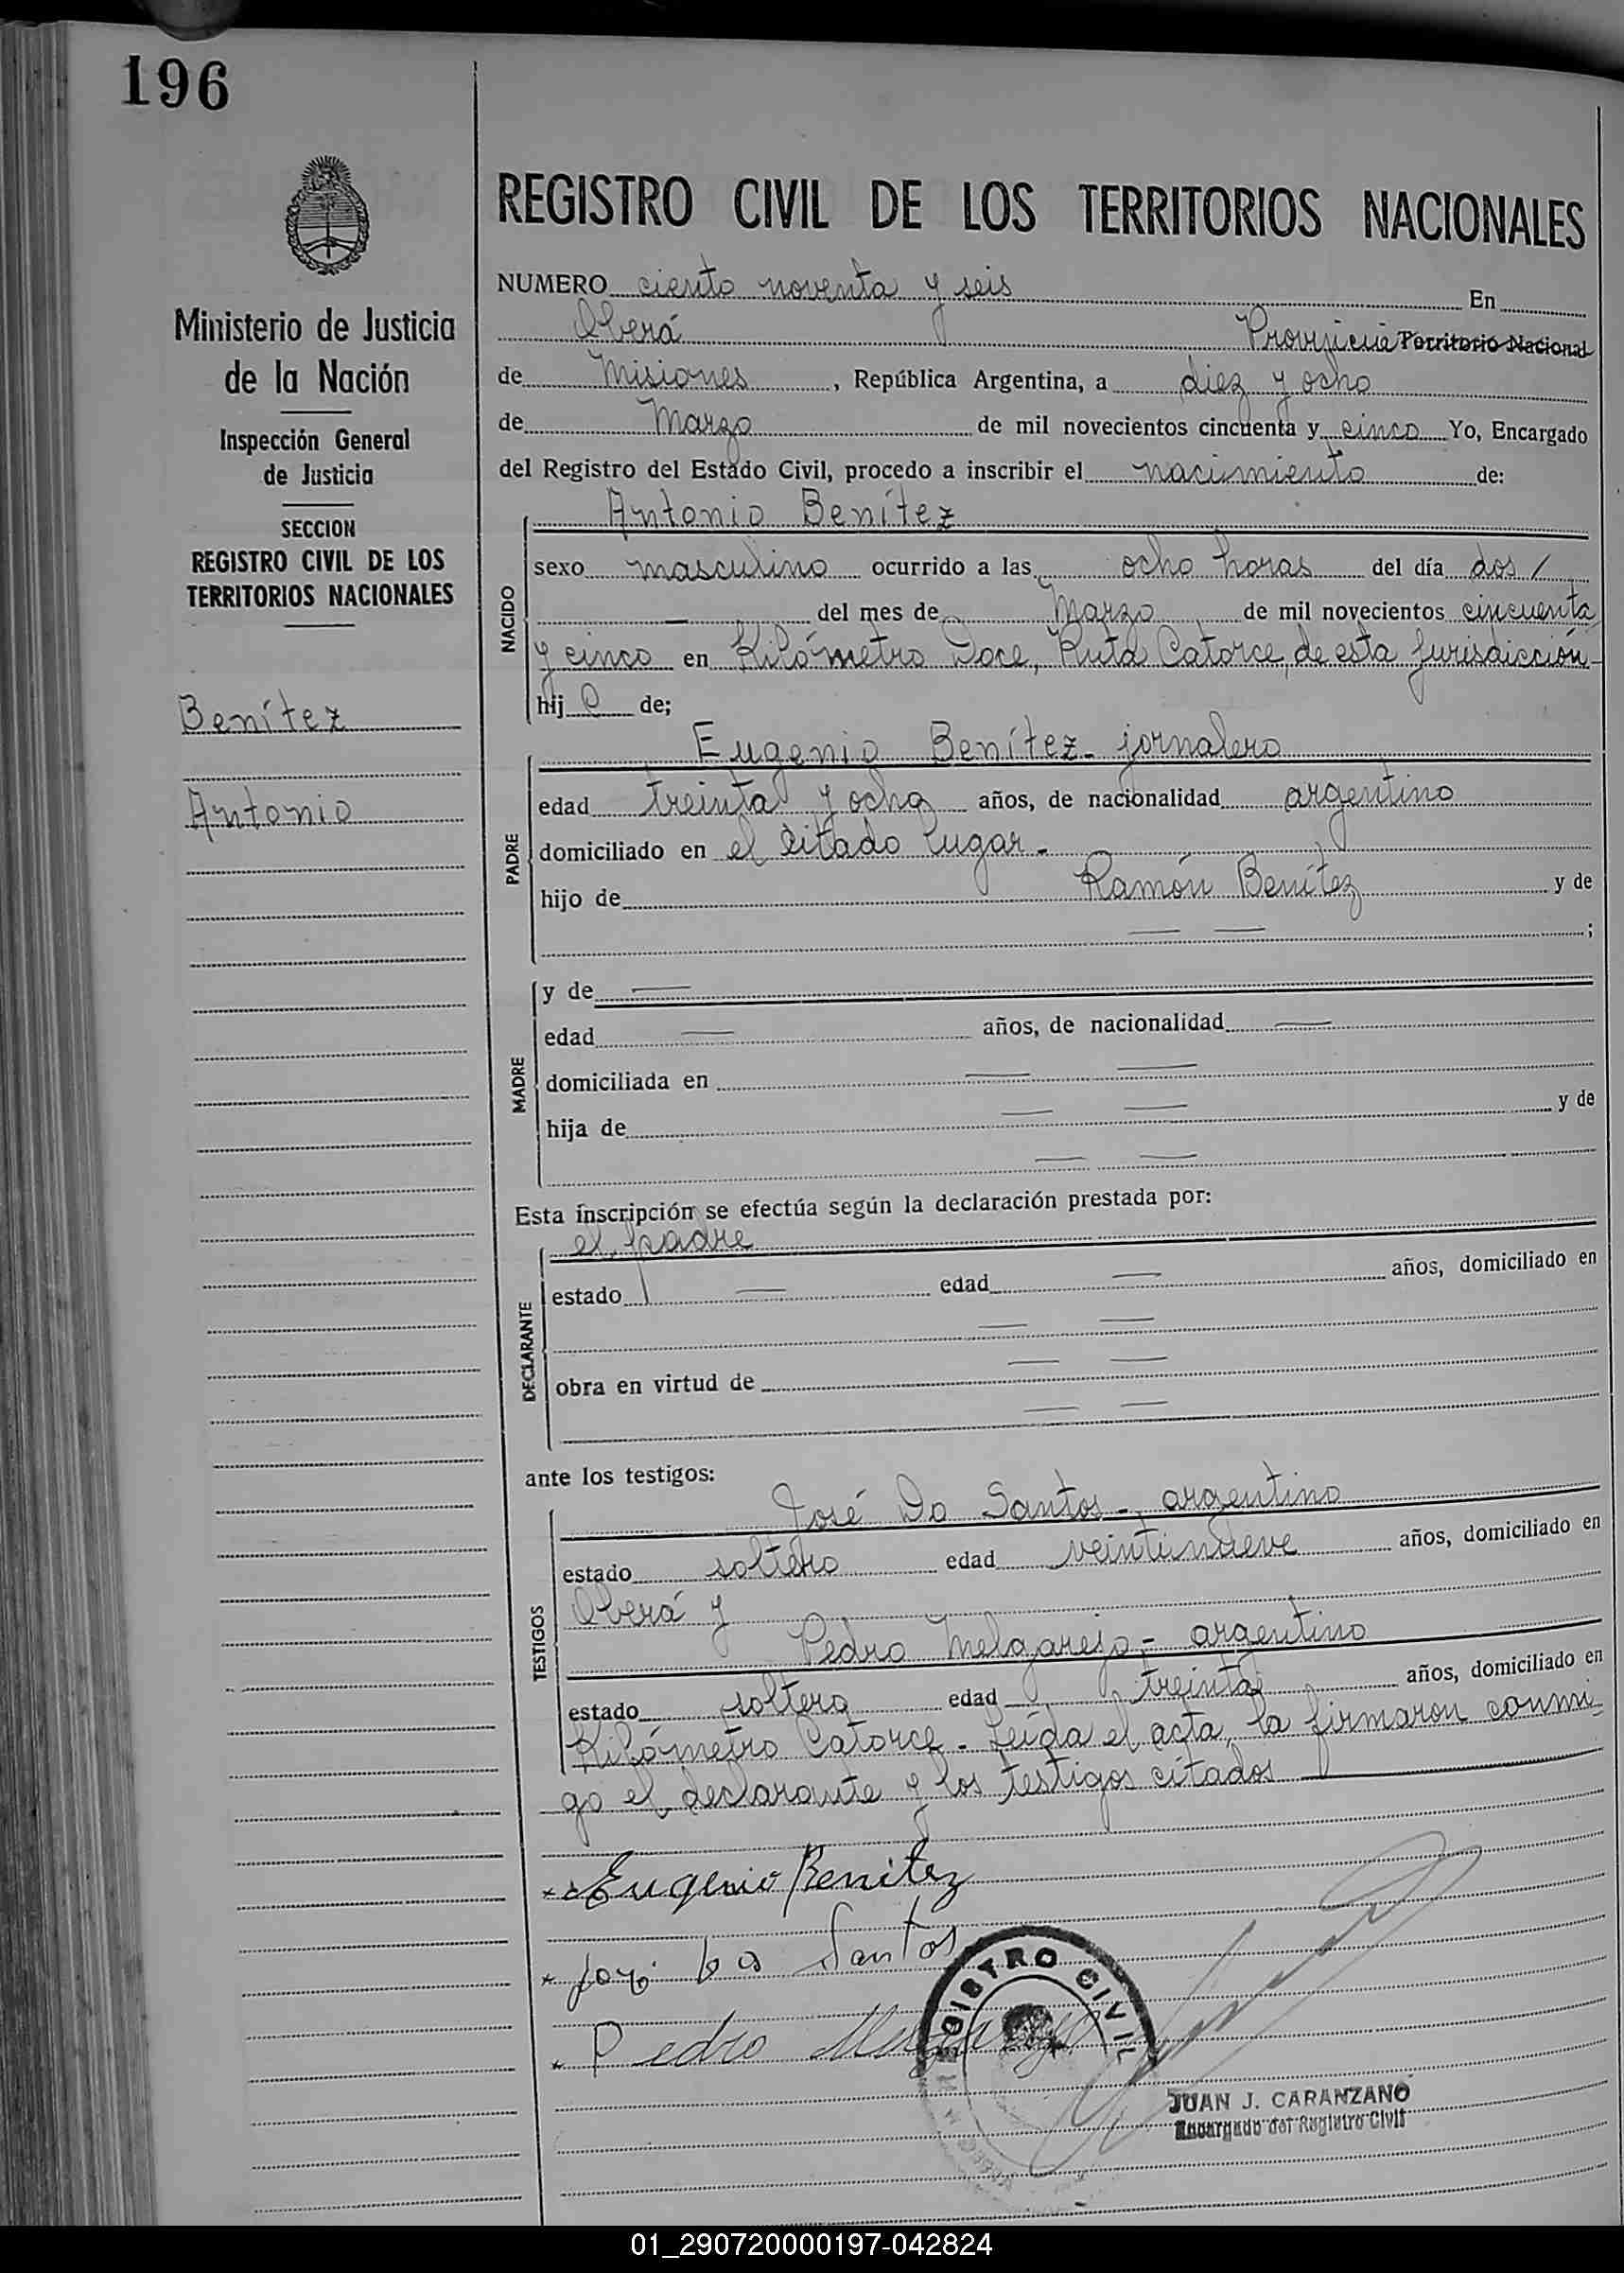 196
Ministerio de Justicia
de la Nación
Inspección General
de Justicia
SECCION
REGISTRO CIVIL DE LOS
TERRITORIOS NACIONALES
Benítez
Antonio
REGISTRO CIVIL DE LOS TERRITORIOS NACIONALES
NUMERO ciento noventa y seis En
Oberá Provincia Territorio Nacional
de Misiones, República Argentina, a diez y ocho
de Marzo de mil novecientos cincuenta y cinco Yo, Encargado
del Registro del Estado Civil, procedo a inscribir el nacimiento de:
NACIDO
Antonio Benítez
sexo masculino ocurrido a las ocho horas del día dos /
— del mes de Marzo de mil novecientos cincuenta
y cinco en Kilómetro Doce, Ruta Catorce, de esta jurisdicción-
hij o de;
PADRE
Eugenio Benítez - jornalero
edad treinta y ocho años, de nacionalidad argentino
domiciliado en el citado lugar -
hijo de Ramón Benítez y de
— — ;
MADRE
y de —
edad — años, de nacionalidad —
domiciliada en — —
hija de — — y de
— —
Esta inscripción se efectúa según la declaración prestada por:
DECLARANTE
el padre
estado — edad — años, domiciliado en
— —
obra en virtud de — —
— —
ante los testigos:
TESTIGOS
José Do Santos - argentino
estado soltero edad veintinueve años, domiciliado en
Oberá y
Pedro Melgarejo - argentino
estado soltero edad treinta años, domiciliado en
Kilómetro Catorce - Leída el acta, la firmaron conmi-
go el declarante y los testigos citados
Eugenio Benitez
José Do Santos
Pedro Melgarejo
REGISTRO CIVIL
JUAN J. CARANZANO
Encargado del Registro Civil
01_290720000197-042824